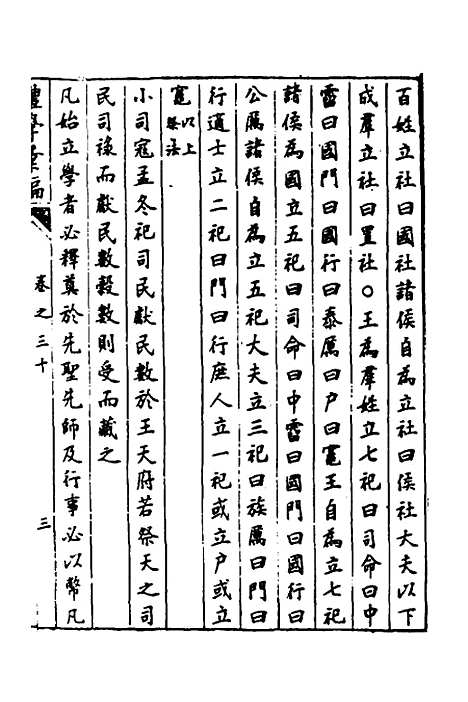 百姓立社曰國社諸侯自為立社曰侯社大夫以下
成羣立社曰置社○王為羣姓立七祀曰司命曰中
霤曰國門曰國行曰泰厲曰户曰竈王自為立七祀
諸侯為國立五祀曰司命曰中霤曰國門曰國行曰
公厲諸侯自為立五祀大夫立三祀曰族厲曰門曰
行適士立二祀曰門曰行庶人立一祀或立户或立
竈以上祭法
小司寇孟冬祀司民獻民數於王天府若祭天之司
民司祿而獻民數穀數則受而藏之
凡始立學者必釋奠於先聖先師及行事必以幣凡
禮學彙編
卷之三十
三